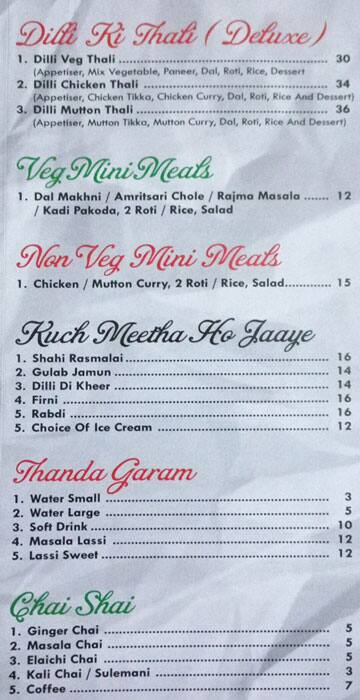 Dilli Ki Thali ( Deluxe )
1. Dilli Veg Thali 30
(Appetiser, Mix Vegetable, Paneer, Dal, Roti, Rice, Dessert
2. Dilli Chicken Thali 34
(Appetiser, Chicken Tikka, Chicken Curry, Dal, Roti, Rice And Dessert)
3. Dilli Mutton Thali 36
(Appetiser, Mutton Tikka, Mutton Curry, Dal, Roti, Rice And Dessert)
Veg Mini Meals
1. Dal Makhni / Amritsari Chole / Rajma Masala ....... 12
/ Kadi Pakoda, 2 Roti / Rice, Salad
Non Veg Mini Meals
1. Chicken / Mutton Curry, 2 Roti / Rice, Salad............. 15
Kuch Meetha Ho Jaaye
1. Shahi Rasmalai 16
2. Gulab Jamun 14
3. Dilli Di Kheer 14
4. Firni 16
5. Rabdi 16
5. Choice Of Ice Cream 12
Thanda Garam
1. Water Small 3
2. Water Large 5
3. Soft Drink 10
4. Masala Lassi 12
5. Lassi Sweet 12
Chai Shai
1. Ginger Chai 5
2. Masala Chai 5
3. Elaichi Chai 5
4. Kali Chai / Sulemani 3
5. Coffee 7